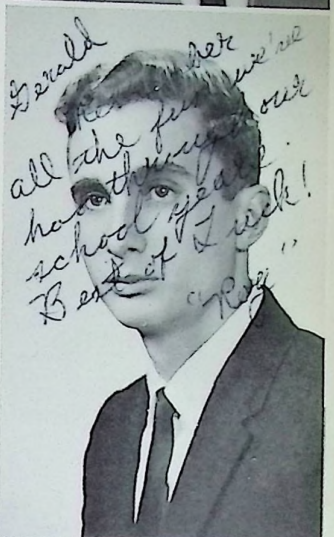 Gerald
Remember
all the fun we've
had through our
school years.
Best of Luck!
"Roy"